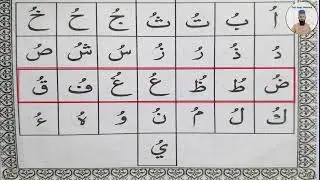 اُ بُ تُ ثُ جُ حُ خُ
دُ ذُ رُ زُ سُ شُ صُ
ضُ طُ ظُ عُ غُ فُ قُ
كُ لُ مُ نُ وُ هُ ءُ
يُ